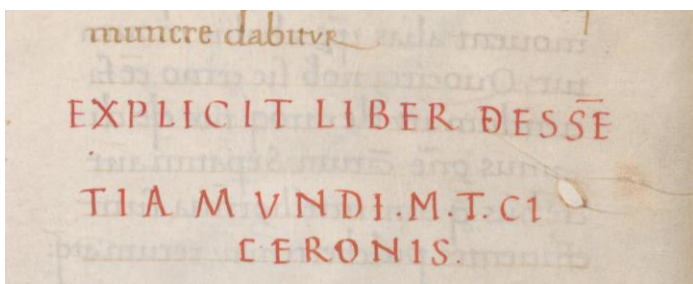 munere dabitur
EXPLICIT LIBER DESSE̅
TIA MVNDI.M.T.CI
CERONIS.